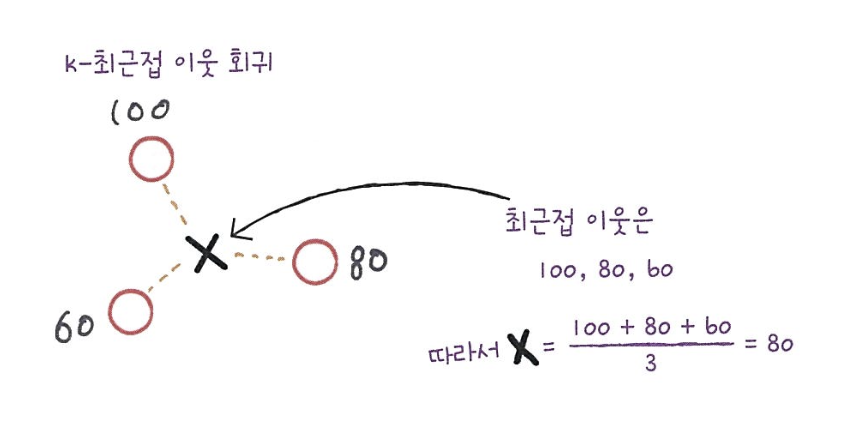 k-최근접 이웃 회귀
100
80
60
X
최근접 이웃은
100, 80, 60
따라서 X = 100 + 80 + 60 / 3 = 80